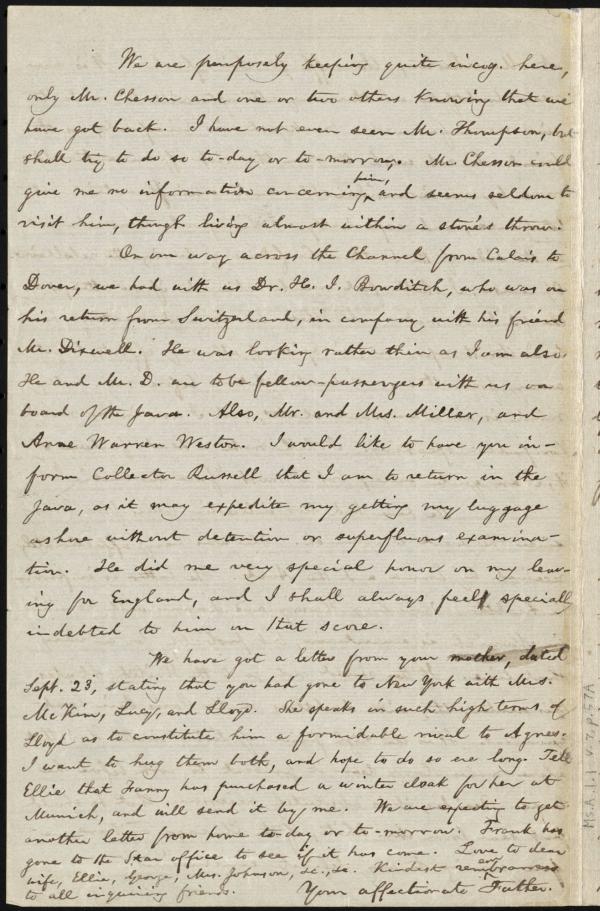 We are purposely keeping quite incog. here,
only Mr. Chesson and one or two others knowing that we
have got back. I have not even seen Mr. Thompson, but
shall try to do so to-day or to-morrow. Mr. Chesson could
give me no information concerning him, and seems seldom to
visit him, though living almost within a stone's throw.
On our way across the Channel from Calais to
Dover, we had with us Dr. H. I. Bowditch, who was on
his return from Switzerland, in company with his friend
Mr. Dixwell. He was looking rather thin as I am also.
He and Mr. D. are to be fellow-passengers with us on
board of the Java. Also, Mr. and Mrs. Miller, and
Anne Warren Weston. I would like to have you in-
form Collector Russell that I am to return in the
Java, as it may expedite my getting my luggage
ashore without detention or superfluous examina-
tion. He did me very special honor on my leav-
ing for England, and I shall always feel specially
indebted to him on that score.
We have got a letter from your mother, dated
Sept. 23, stating that you had gone to New York with Mrs.
McKim, Lucy, and Lloyd. She speaks in such high terms of
Lloyd as to constitute him a formidable rival to Agnes.
I want to hug them both, and hope to do so ere long. Tell
Ellie that Fanny has purchased a winter cloak for her at
Munich, and will send it by me. We are expecting to get
another letter from home to-day or to-morrow. Frank has
gone to the Star office to see if it has come. Love to dear
wife, Ellie, George, Mrs. Johnson, &c., &c. Kindest remembrances
to all inquiring friends. Your affectionate Father.
Ms.A.1.1 v.7, p.57A